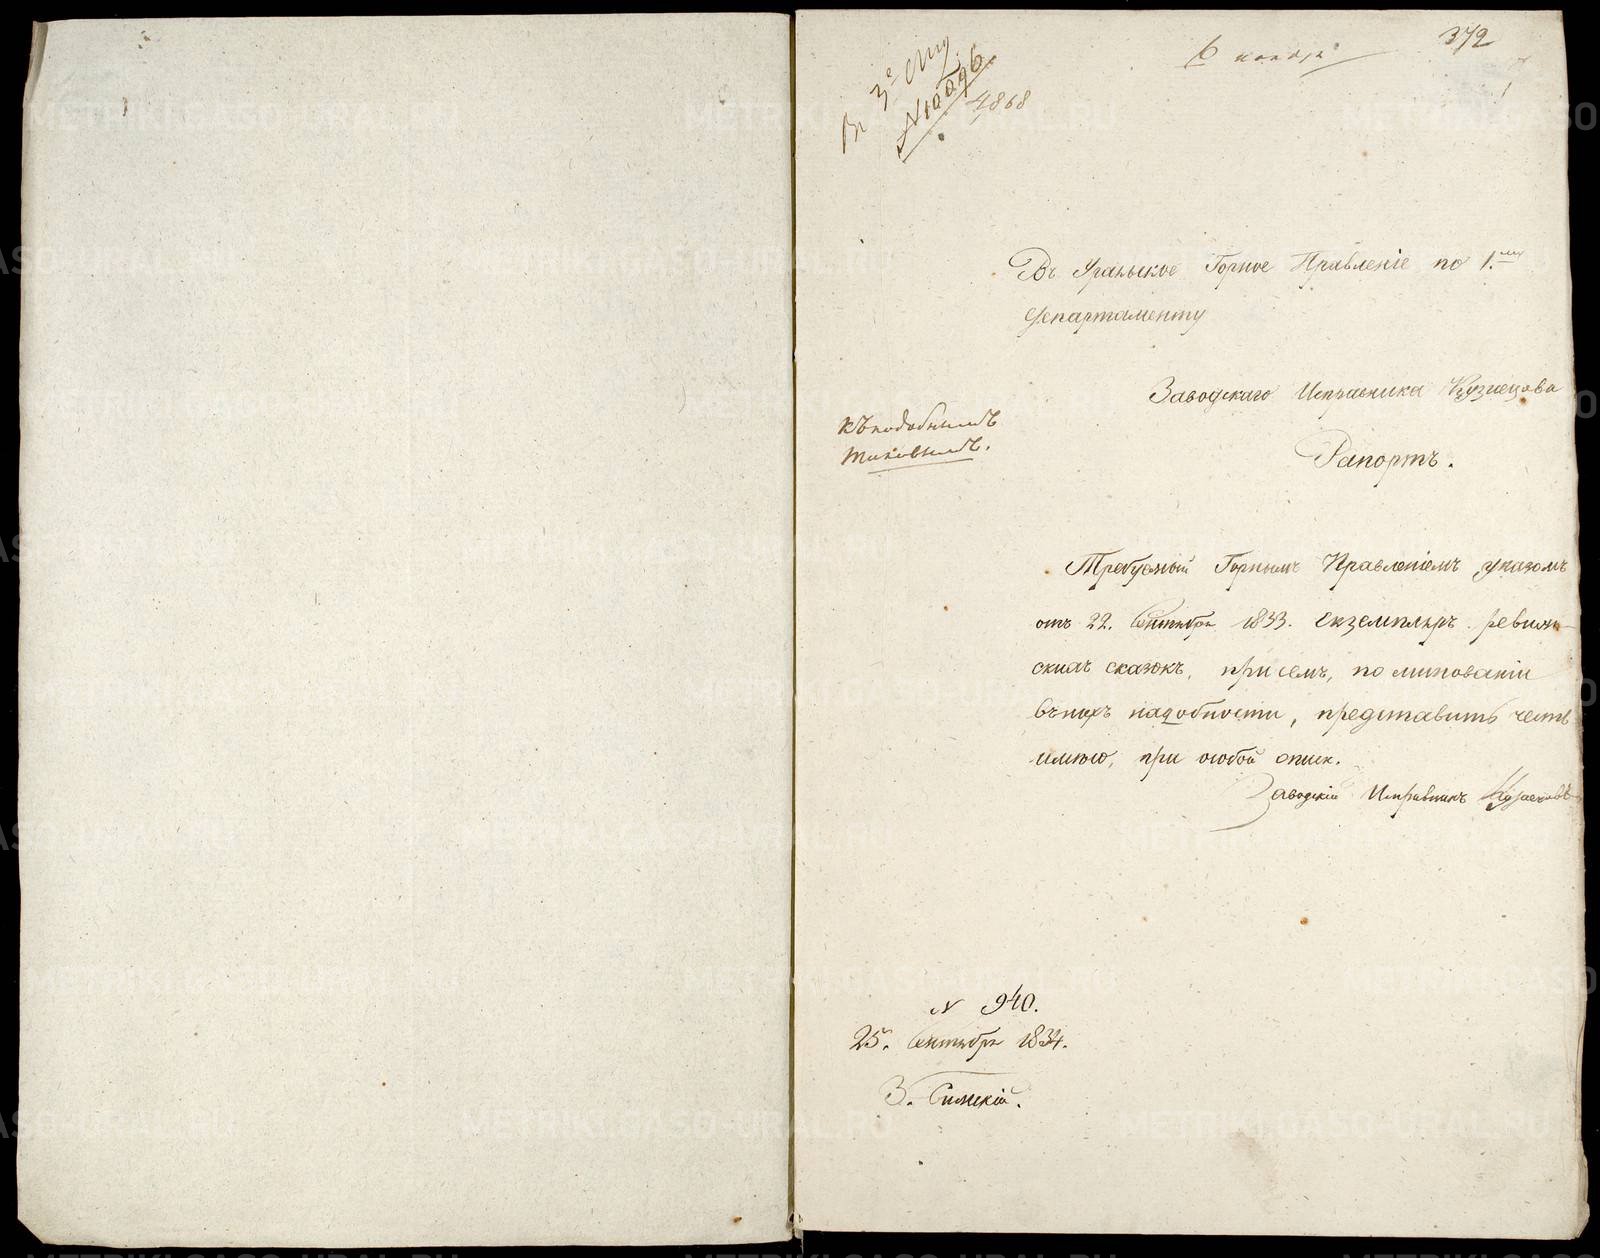 372
6 ноября
Въ 3е
№ 10096
4868
Въ Уральское Горное Правленіе по 1.му
Департаменту
Заводскаго Исправника Кузнецова
Къ подобнымъ
таковымъ.
Рапортъ.
Требуемый Горнымъ Правленіемъ указомъ
отъ 22. Сентября 1833. екземпляръ ревиж-
скихъ сказокъ, при семъ, по минованіи
въ нихъ надобности, представить честь
имѣю, при особой описи.
Заводскій Исправникъ Кузнецовъ
№ 940.
25. Сентября 1834.
З. Симскій.